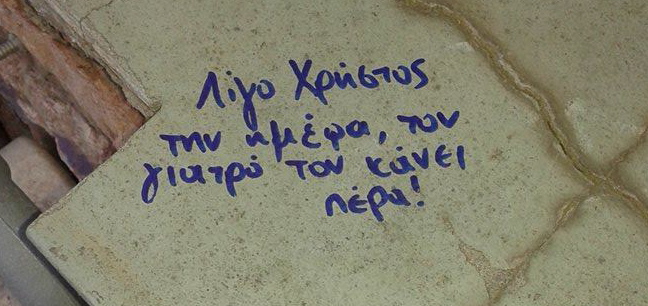 Λίγο Χρήστος
την ημέρα, τον
γιατρό τον κάνει
πέρα!